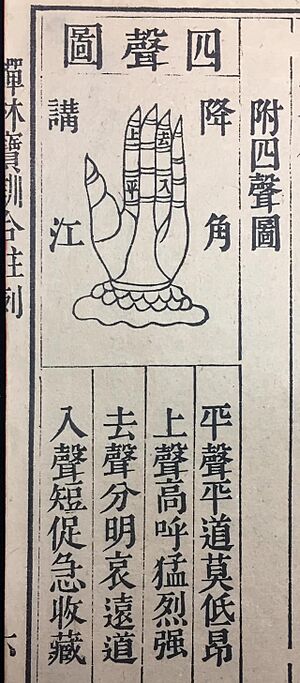 附四聲圖
四聲圖
降角
講江
上去
平入
平聲平道莫低昂
上聲高呼猛烈强
去聲分明哀遠道
入聲短促急收藏
禪林寶訓合註列
六